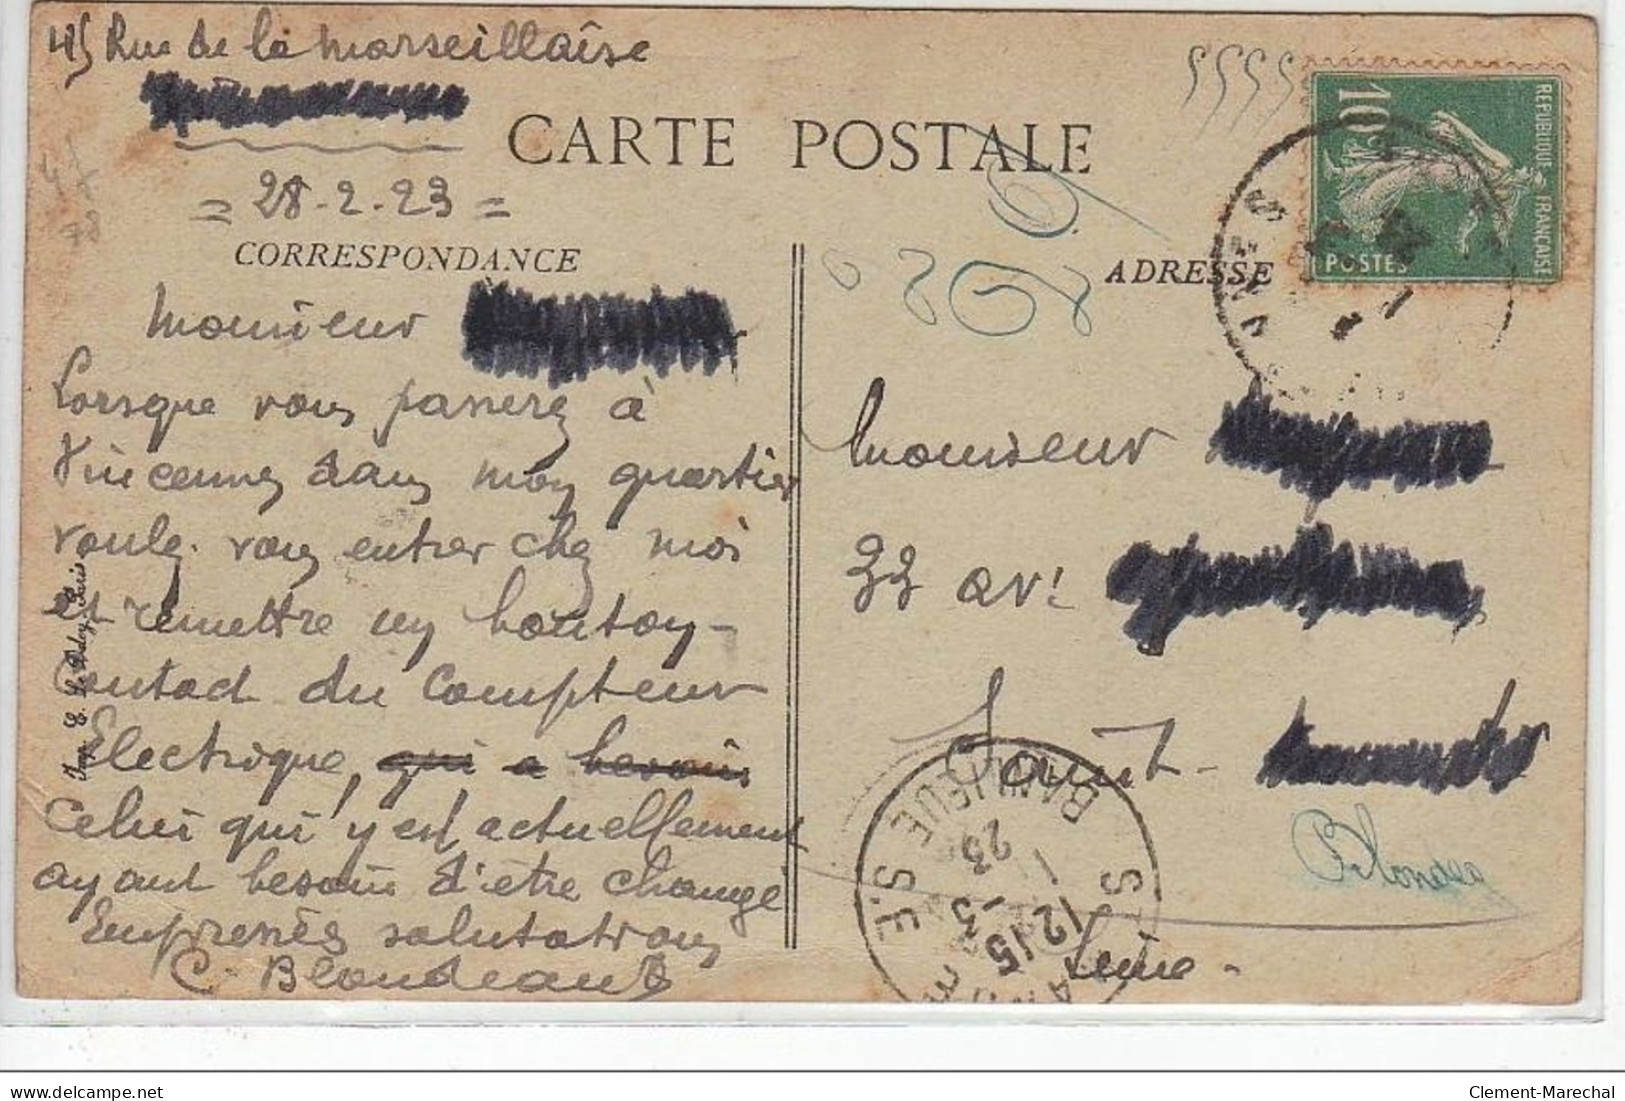 45 Rue de la Marseillaise
= 28-2-23 =
CARTE POSTALE
CORRESPONDANCE
ADRESSE
Monsieur
Lorsque vous passerez à
Vincennes dans mon quartier
voulez-vous entrer chez moi
et remettre un bouton-
contact du compteur
Electrique, qui a besoin
Celui qui y est actuellement
ayant besoin d'être changé
Empressées salutations
C. Blondeau
Imp. E. Le Deley, Paris
REPUBLIQUE FRANÇAISE
10c
POSTES
Monsieur
33 av.
Saint-
Seine-
BANLIEUE S.E
12 15
1 -3
23
delcampe.net
Clement-Marechal